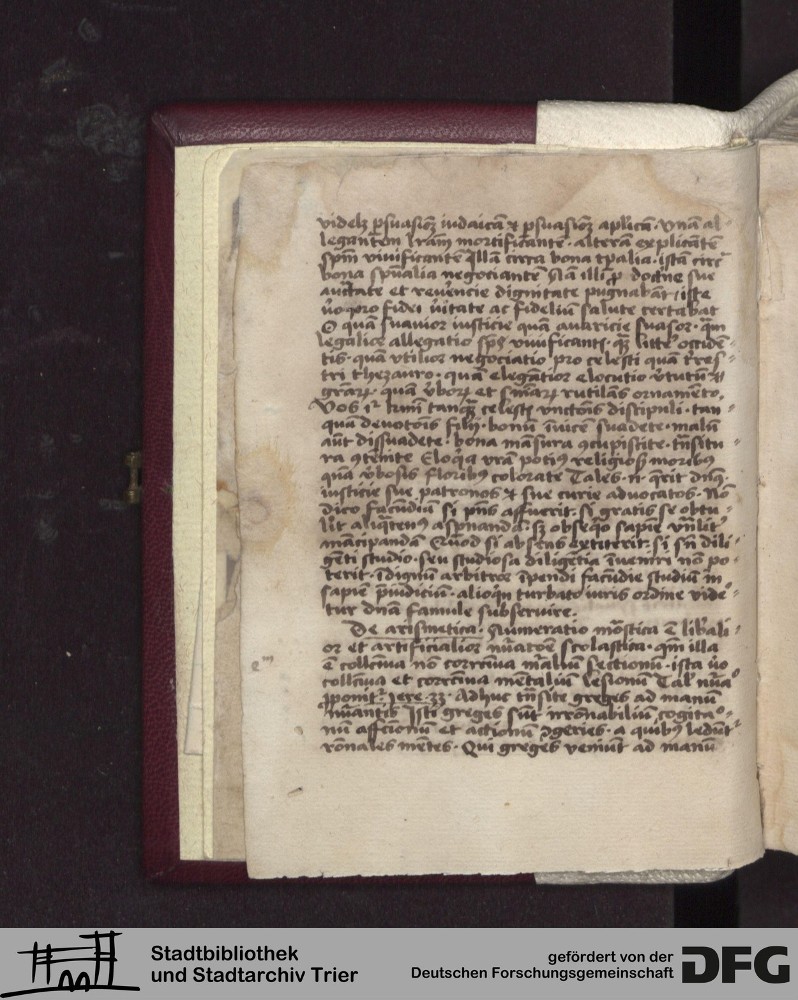 videlz psuasioz iudaicā & psuasioz aplicā · vnā al-
legantem lrām mortificantē · alterā explicātē
spm̄ viuificantē Illā circa bona tpalia · istā circᵃ
bona spūalia negociantē
auctate et reuencie dignitate pugnabāt / iste
vo pro fidei vitate ac fideliū salute certabat
O quā suauior iusticie quā auaricie suasor · qm̄
legalice allegatio spūs viuificantis · qz litte occidē-
tis · quā vtilior negociatio pro celesti quā tres-
tri thezauro · quā elegātior elocutio vtutū &
grāꝝ · quā vboꝝ et sniaꝝ rutilās ornamēto ·
Vos celestis vnctōis discipuli · tan-
quā deuotōis filij · bonū īuicē suadete · malū
aūt dissuadete · bona māsura ꝯcupiscite · trāsitu-
ra ꝯtēnite Eloqia vrām potiꝰ religiosis moribꝰ
quā vbosis floribꝰ colorate Tales · n · qrit dn̄s
iusticie sue patronos & sue curie aduocatos · Nō
dico facūdiā si pn̄s affuerit · si gratis se obtu-
lit aliqtenꝰ aspnandā · sz obseqo sapiē vtilit
māncipandā Quod si absens extiterit · si sn̄ dili-
gēti studio · seu studiosa diligētia īueniri nō po-
terit · īdignū arbitror īpendi facūdie studiū in
sapiē piudiciū · alioqn turbato iuris ordine vide-
tur dnām famule subseruire ·
De arismetica · Numeratio mōstica ē libali-
or et artificialior nūatōe scolastica · qm̄ illa
ē collectiua nō correctiua mālium sectionū · ista vo
collectiua et correctiua mentaliū lesionū Tal nūaᵒ
pponitᷣ · Jere · 33 · Adhuc trāsite greges ad manū
nūantis Isti greges sūt irrōnabiliū cogitaᵒ-
nū affectionū et actionū ꝯgeries · a quibꝰ ledūt
rōnales mētes · Qui greges veniūt ad manū
Stadtbibliothek
und Stadtarchiv Trier
gefördert von der
Deutschen Forschungsgemeinschaft
DFG